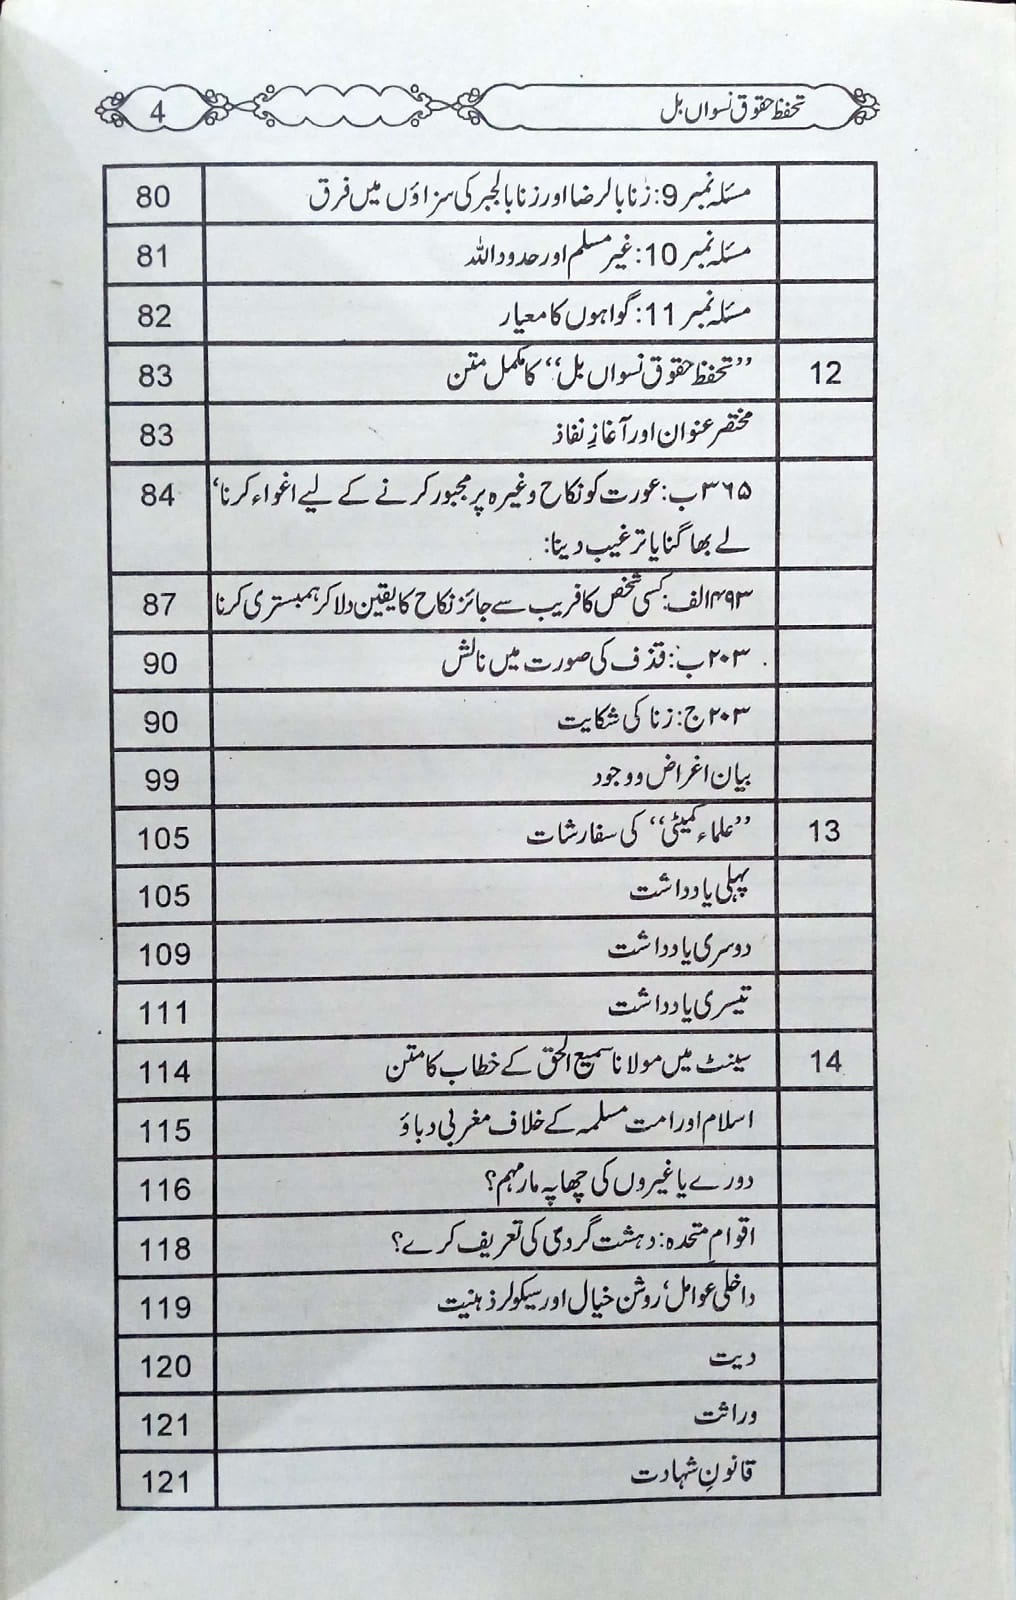 تحفظ حقوق نسواں بل 4
مسئلہ نمبر 9: زنا بالرضا اور زنا بالجبر کی سزاؤں میں فرق 80
مسئلہ نمبر 10: غیر مسلم اور حدود اللہ 81
مسئلہ نمبر 11: گواہوں کا معیار 82
12 ”تحفظ حقوق نسواں بل“ کا مکمل متن 83
مختصر عنوان اور آغازِ نفاذ 83
۳۶۵ب: عورت کو نکاح وغیرہ پر مجبور کرنے کے لیے اغواء کرنا‘ 84
لے بھاگنا یا ترغیب دینا:
۴۹۳الف: کسی شخص کا فریب سے جائز نکاح کا یقین دلا کر ہمبستری کرنا 87
۲۰۳ب: قذف کی صورت میں نالش 90
۲۰۳ج: زنا کی شکایت 90
بیان اغراض و وجود 99
13 ”علماء کمیٹی“ کی سفارشات 105
پہلی یادداشت 105
دوسری یادداشت 109
تیسری یادداشت 111
14 سینٹ میں مولانا سمیع الحق کے خطاب کا متن 114
اسلام اور امت مسلمہ کے خلاف مغربی دباؤ 115
دورے یا غیروں کی چھاپہ مار مہم؟ 116
اقوامِ متحدہ: دہشت گردی کی تعریف کرے؟ 118
داخلی عوامل‘ روشن خیال اور سیکولر ذہنیت 119
دیت 120
وراثت 121
قانونِ شہادت 121